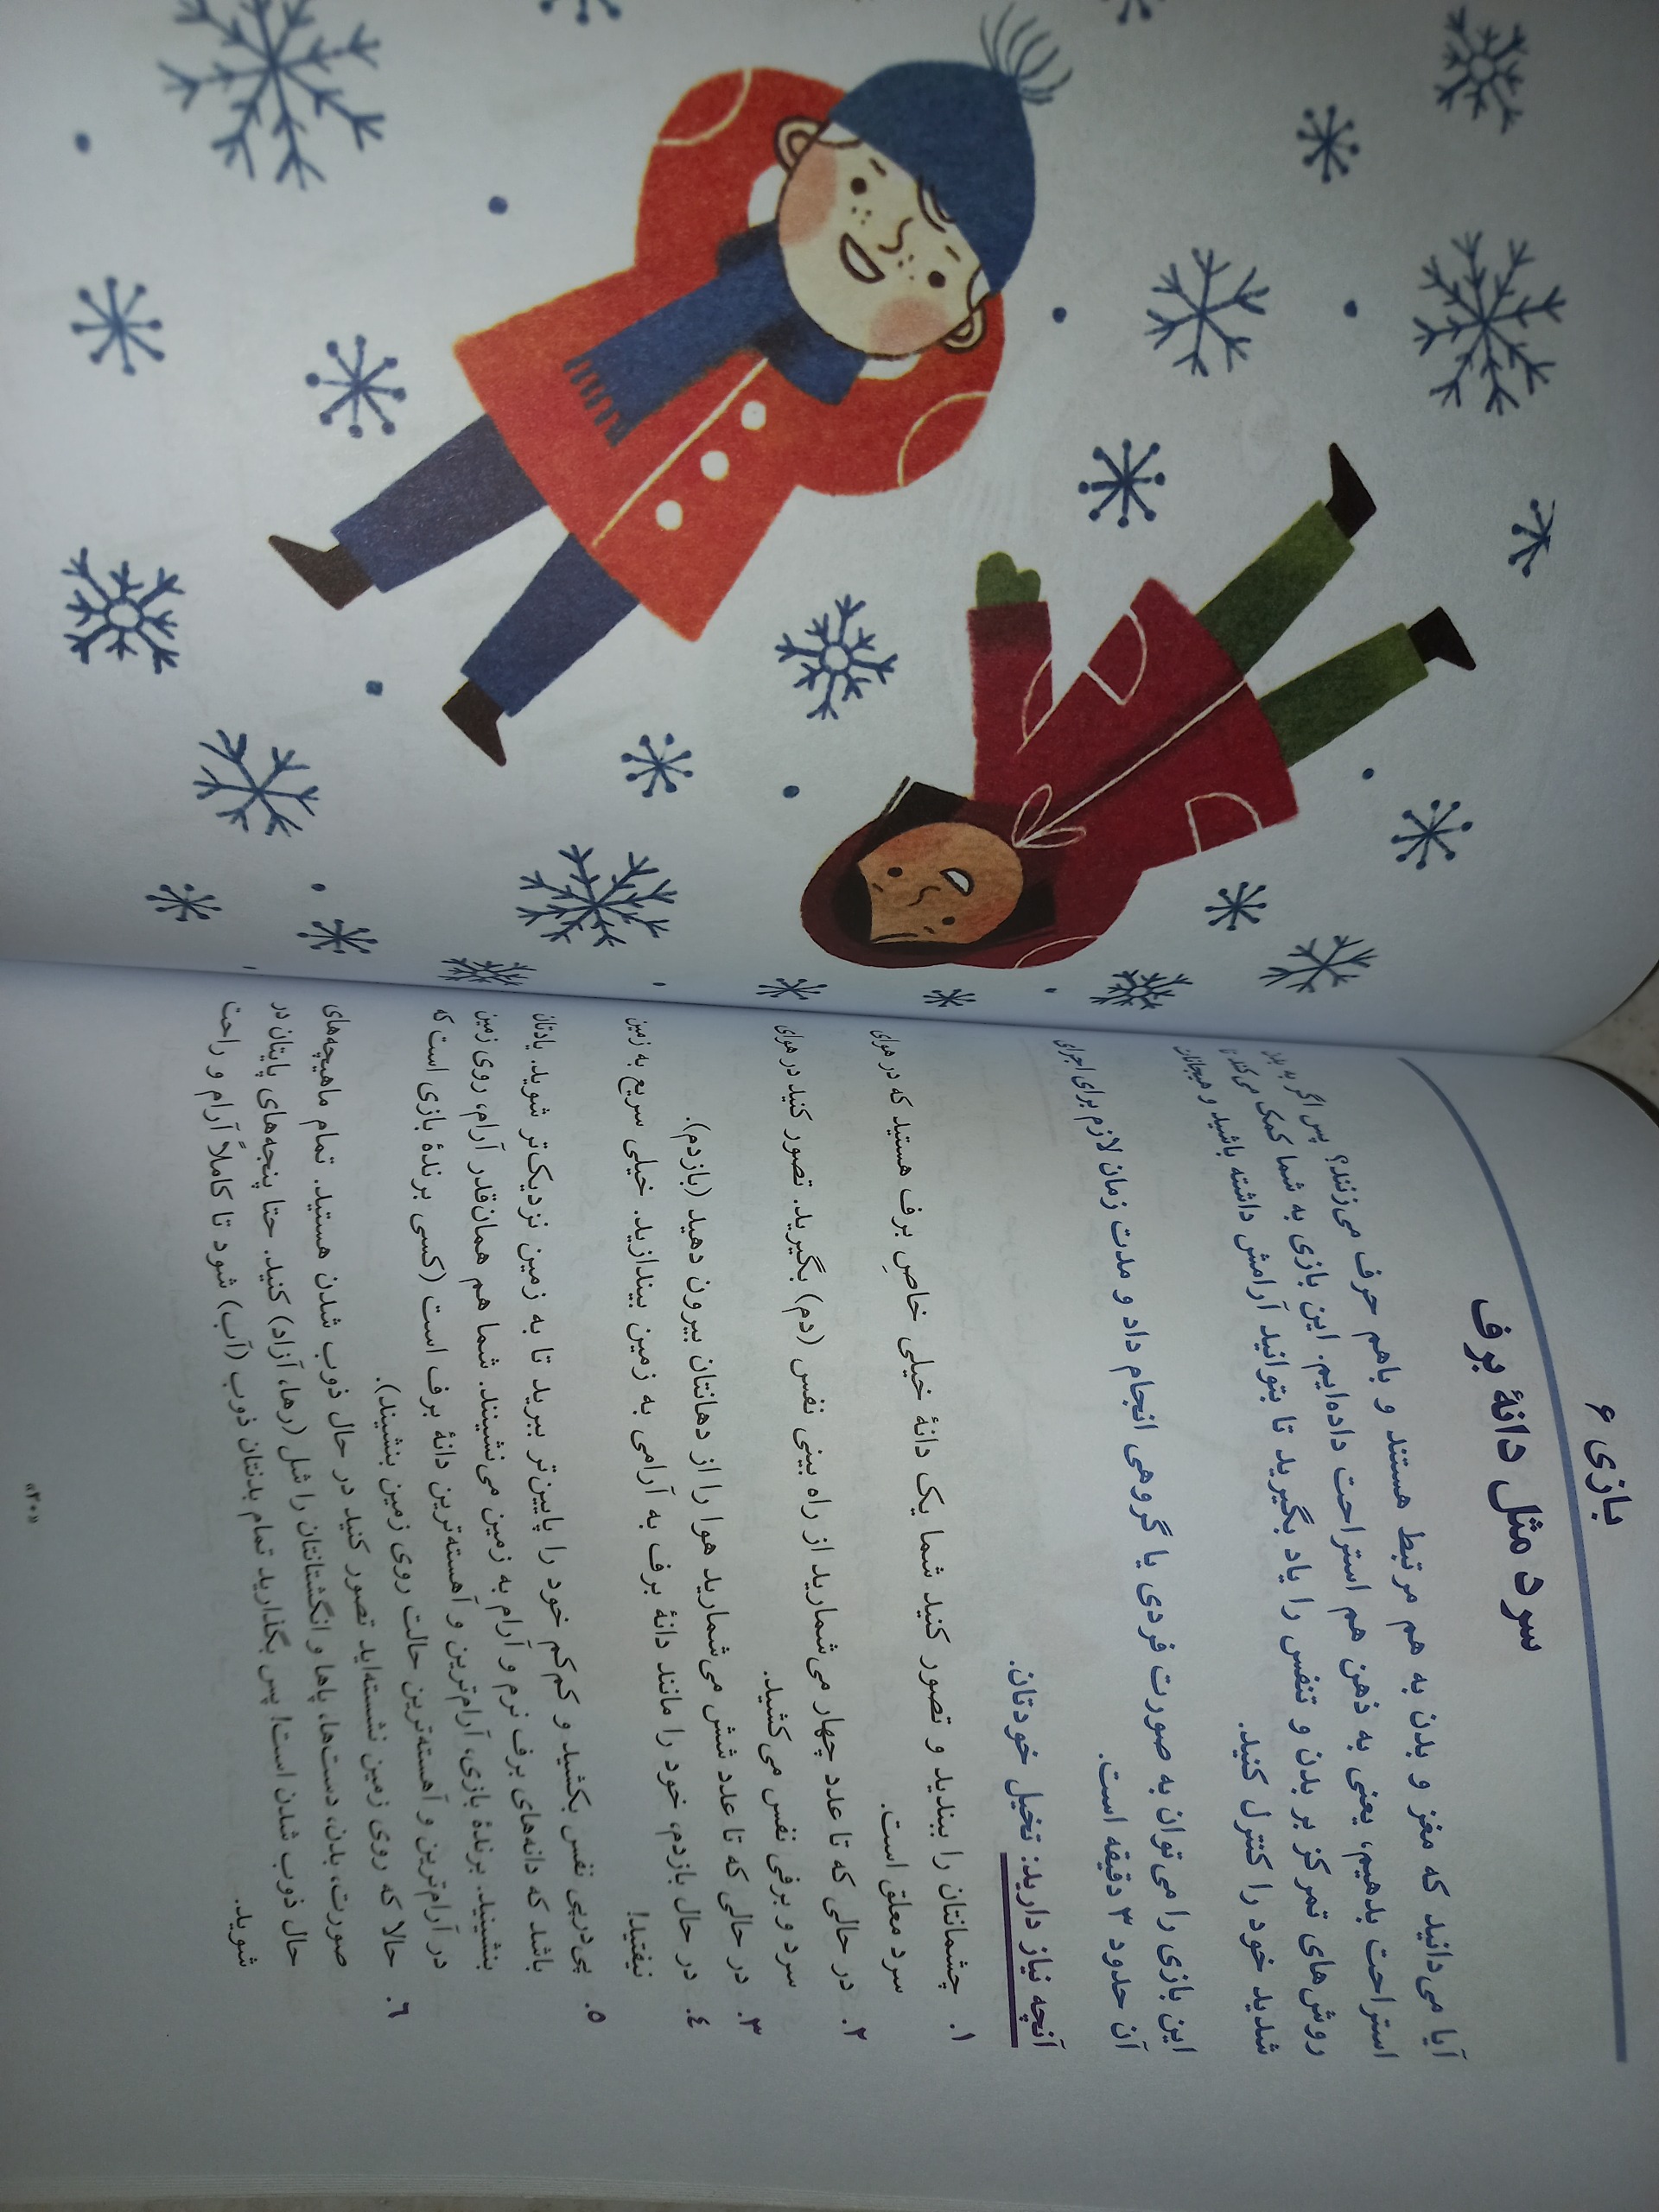 بازی ۶
سرد مثل دانهٔ برف
آیا می‌دانید که مغز و بدن به هم مرتبط هستند و باهم حرف می‌زنند؟ پس اگر به بدن
استراحت بدهیم، یعنی به ذهن هم استراحت داده‌ایم. این بازی به شما کمک می‌کند تا
روش‌های تمرکز بر بدن و تنفس را یاد بگیرید تا بتوانید آرامش داشته باشید و هیجانات
شدید خود را کنترل کنید.
این بازی را می‌توان به صورت فردی یا گروهی انجام داد و مدت زمان لازم برای اجرای
آن حدود ۳ دقیقه است.
آنچه نیاز دارید: تخیل خودتان.
۱. چشمانتان را ببندید و تصور کنید شما یک دانهٔ خیلی خاصِ برف هستید که در هوای
سرد معلق است.
۲. در حالی که تا عدد چهار می‌شمارید از راه بینی نفس (دم) بگیرید. تصور کنید در هوای
سرد و برفی نفس می‌کشید.
۳. در حالی که تا عدد شش می‌شمارید هوا را از دهانتان بیرون دهید (بازدم).
۴. در حال بازدم، خود را مانند دانهٔ برف به آرامی به زمین بیندازید. خیلی سریع به زمین
نیفتید!
۵. پی‌درپی نفس بکشید و کم‌کم خود را پایین‌تر ببرید تا به زمین نزدیک‌تر شوید. یادتان
باشد که دانه‌های برف نرم و آرام به زمین می‌نشینند. شما هم همان‌قدر آرام، روی زمین
بنشینید. برندهٔ بازی، آرام‌ترین و آهسته‌ترین دانهٔ برف است (کسی برندهٔ بازی است که
در آرام‌ترین و آهسته‌ترین حالت روی زمین بنشیند).
۶. حالا که روی زمین نشسته‌اید تصور کنید در حال ذوب شدن هستید. تمام ماهیچه‌های
صورت، بدن، دست‌ها، پاها و انگشتانتان را شل (رها، آزاد) کنید. حتا پنجه‌های پایتان در
حال ذوب شدن است! پس بگذارید تمام بدنتان ذوب (آب) شود تا کاملاً آرام و راحت
شوید.
«۲۰»